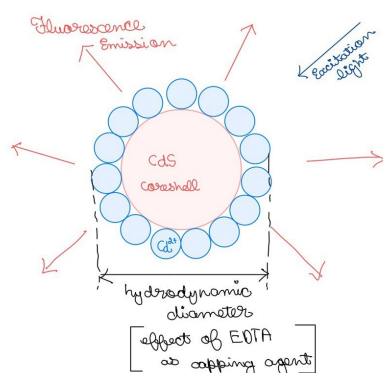 Fluorescence
Emission
Excitation
light
CdS
coreshell
Cd²⁺
hydrodynamic
diameter
effect of EDTA
as capping agent